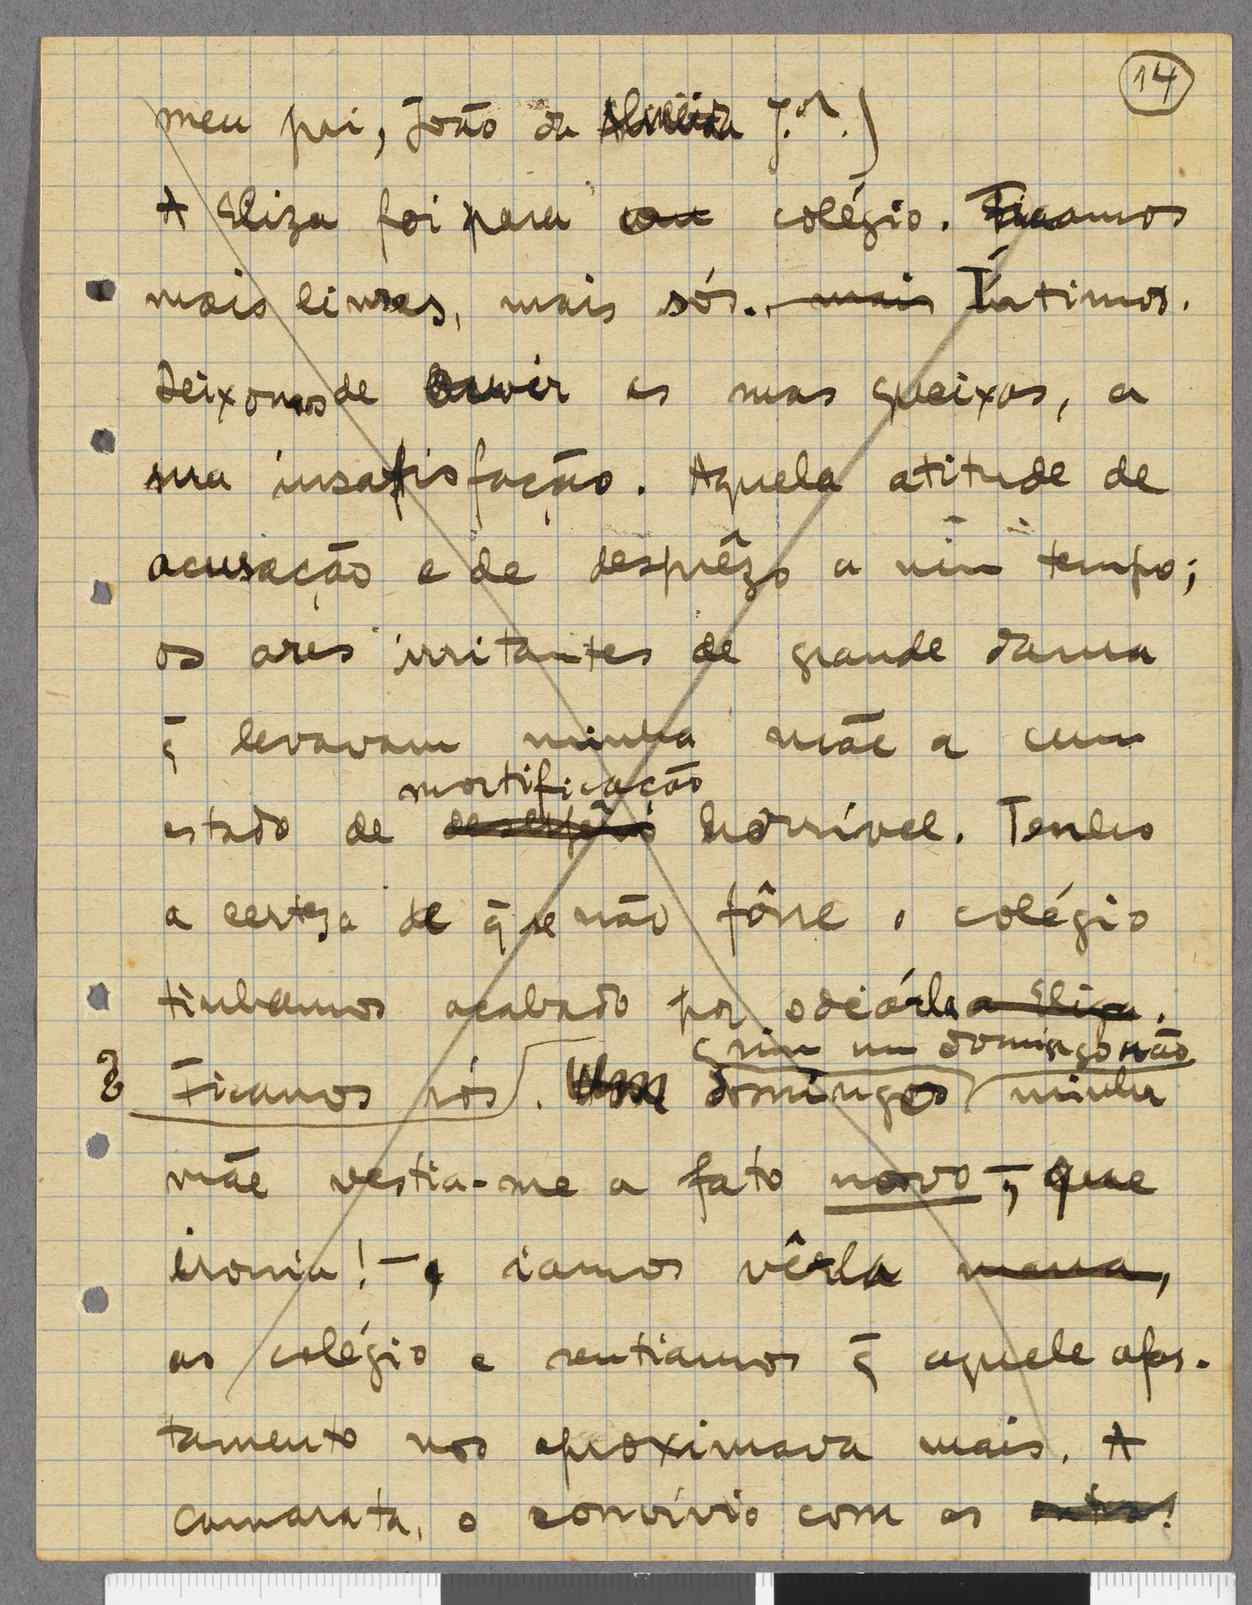 14
meu pai, João da Almeida J.or.)
A Eliza foi para um colégio. Ficamos
mais livres, mais sós. mais Íntimos.
Deixamos de ouvir as suas queixas, a
sua insatisfação. Aquela atitude de
acusação e de desprêzo a um tempo;
os ares irritantes de grande dama
q̄ levavam minha mãe a um
mortificação
estado de desespêro horrível. Tenho
a certeza de q̄ se não fôsse o colégio
tinhamos acabado por odeá-la a Eliza.
Sim um domingo não
Ficamos nós. Um domingos minha
mãe vestia-me o fato novo –, que
ironia! –, iamos vê-la mana,
ao colégio e sentiamos q̄ aquele afas-
tamento nos aproximava mais. A
camarata, o convívio com as